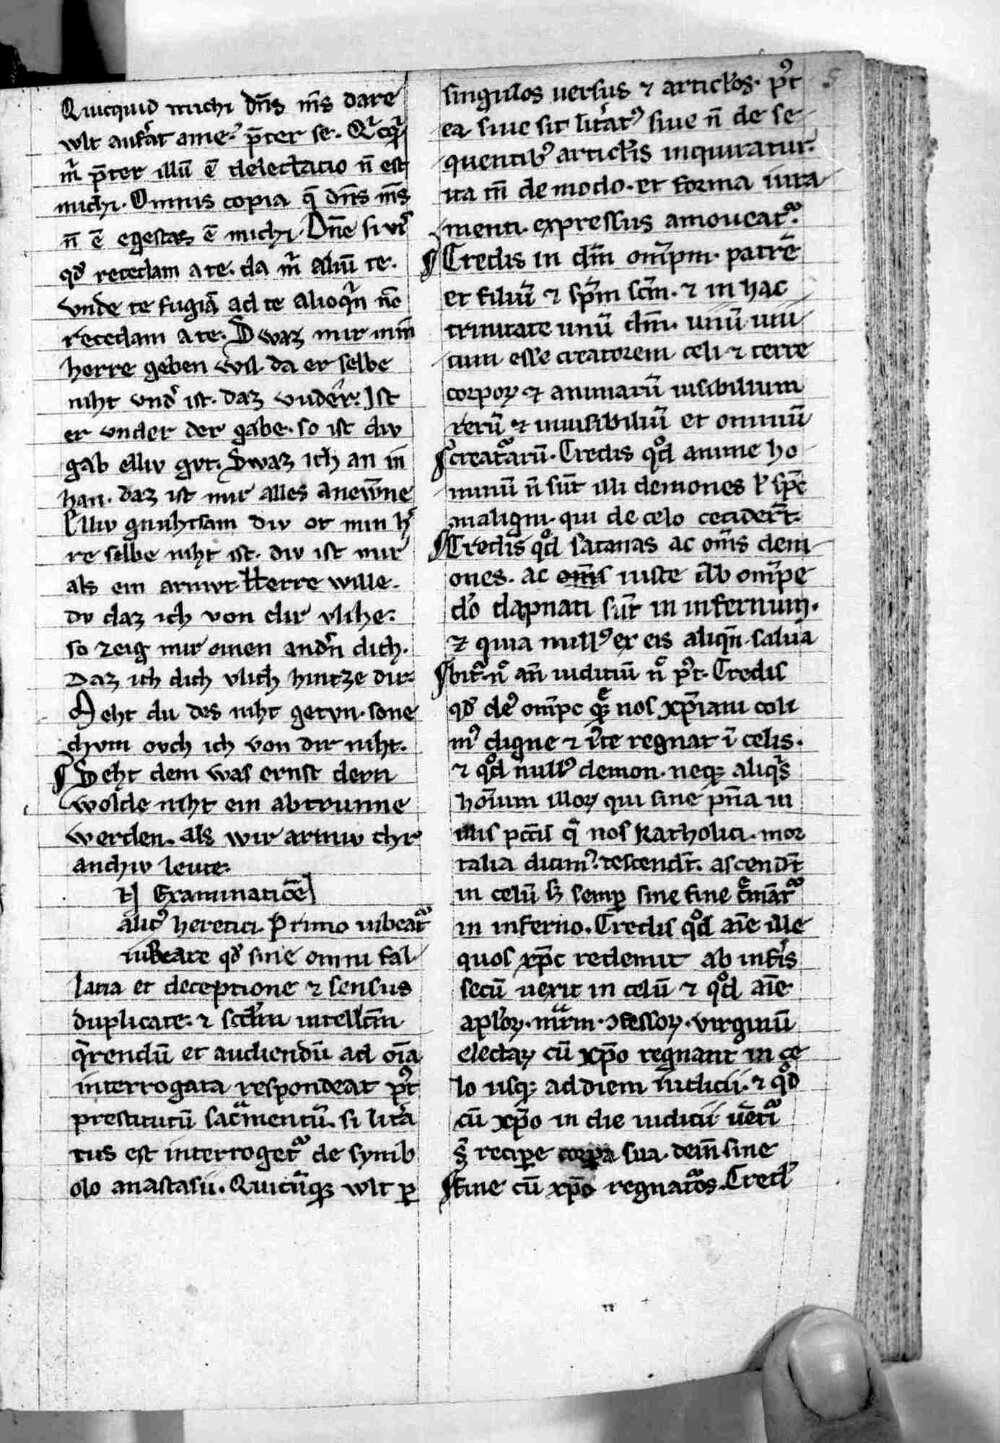 Quicquid michi dn̄s m̄s dare
wlt aufˀat ame. p̄ter se. Qͥcqͥd
m̄ p̄ter illū ē delectacio n̄ est
michi. Omnis copia q̄ dn̄s m̄s
n̄ ē egestas ē michi. Dn̄e si vis
qd̓ recedam a te. da m̄ aliū te.
vnde te fugiā ad te alioqͥn nō
recedam a te. Swaz mir min
herre geben wil da er selbe
niht vndˀ ist. daz vnder. Ist
er vnder der gabe. so ist div
gab elliv gvt. Swaz ich an in
han. daz ist mir alles anewne
Elliv gnuhtsam div ot min hˀ
re selbe niht ist. div ist mir
als ein armvt. Herre wille
dv daz ich von dir vlihe.
so zeig mir einen andˀn dich.
Daz ich dich vlich hintze dir.
Aeht du des niht getvn. sone
chvm ovch ich von dir niht.
Seht dem was ernst dern
wolde niht ein abtrunne
werden. als wir armiv chr
anchiv leute.
Examinatiōe
alicˀ heretici. Primo iubeatᷣ
iurare qd̓ sine omni fal
lacia et deceptione ⁊ sensus
duplicate. ⁊ scd̄m intellcm̄
qͣrendū et audiendū ad oīa
interrogata respondeat p̄t
prestitutū sacͣmentū. si litˀa
tus est interrogetᷣ de symb
olo anastasii. Quicūqꝫ wlt ꝑ
singulos uersus ⁊ articlos. p̄t
ea siue sit litˀatꝰ siue n̄ de se
quentibꝰ articlis inquiratur.
ita m̄ de modo. et forma iura
menti. expressus amoueatᷣ.
Credis in dm̄ om̄ipm. patrē
et filiū ⁊ spm̄ scm̄. ⁊ in hac
trinitate unū dm̄. unū uni
cum esse creatorem celi ⁊ terre
corpoꝝ ⁊ animarū uisibilium
rerū ⁊ inuisibiliū et omniū
creatᷣarū. Credis qd̓ anime ho
minū n̄ sūt illi demones ł spc̄
maligni. qui de celo ceciderūt.
Credis qd̓ satanas ac om̄s dem
ones. ac om̄s iuste ab om̄ipe
do dapnati sūt in infernum.
⁊ quia nullꝰ ex eis aliqn̄ salua
bitᷣ. nͦ an̄ iuditiū nͦ p̄t. Credis
qd̓ dēs om̄pc quē nos xp̄iani coli
mꝰ digne ⁊ iˀte regnat ī celis.
⁊ qd̓ nullꝰ demon. neqꝫ aliqͥs
hoīum illoꝝ qui sine pn̄ia in
illis pctīs q̄ nos katholici. mor
talia dicimꝰ. descendīt. ascendīt
in celū sꝫ semꝑ sine fine cͥminātᷣ
in inferno. Credis qd̓ aīe ille
quos xp̄c redemit ab inf̓is
secū uexit in celū ⁊ qd̓ aīe
apl̓oꝝ. mͣrm. ꝯfessoꝝ. virginū
electaꝝ cū xp̄o regnant in ce
lo usqꝫ ad diem iudicii. ⁊ qd̓
cū xp̄o in die iudicii uētᷣi
sͣ reciꝑe corpa sua. dem̄ sine
fine cū xp̄o regnatᷣos. Cred̓